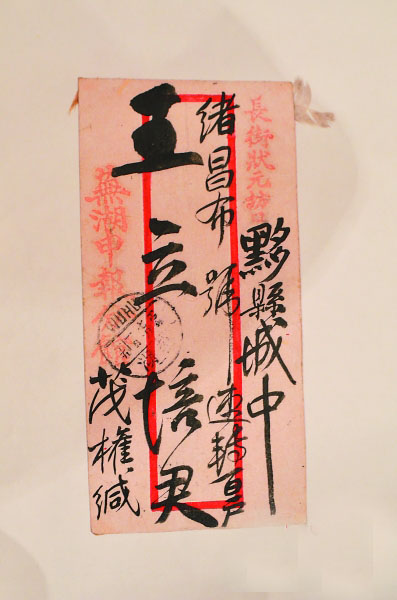 長街狀元坊
黟縣城中
緒昌布號速轉
王立培君
蕪湖申報
茂權緘
WUHU